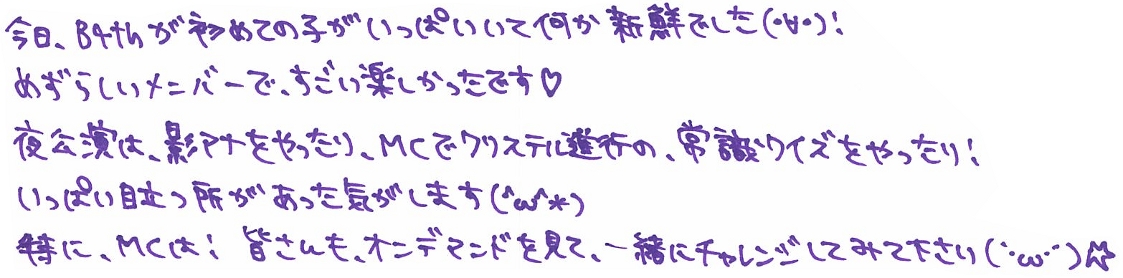 今日、B4thが初めての子がいっぱいいて何か新鮮でした(・∀・)!
めずらしいメンバーで、すごい楽しかったです♡
夜公演は、影アナをやったり、MCでクリステル進行の、常識クイズをやったり!
いっぱい目立つ所があった気がします(^ω^*)
特に、MCは! 皆さんも、オンデマンドを見て、一緒にチャレンジしてみて下さい(´・ω・`)